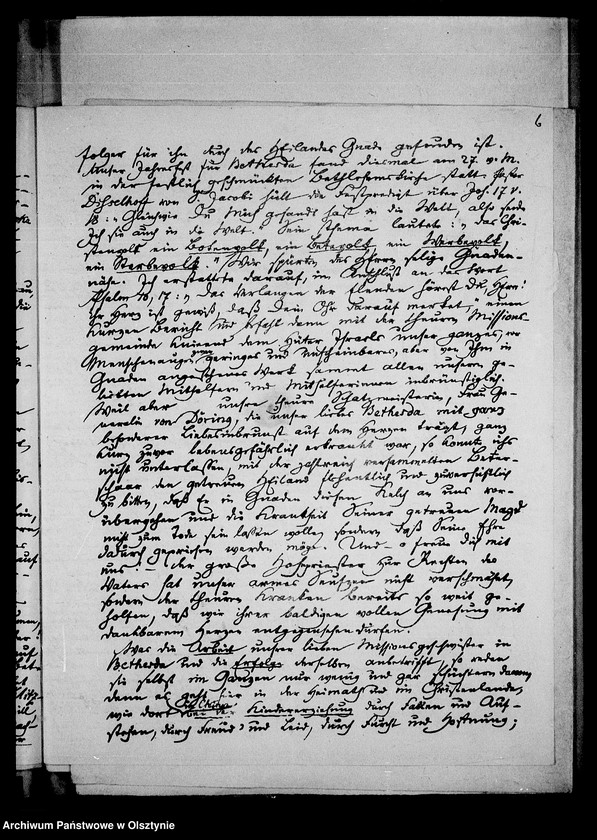 6
folger für ihn durch des Heilandes Gnade gefunden ist.
Unser Jahresfest für Bethesda fand diesmal am 27. v. M.
in der festlich geschmückten Bethlehemskirche statt. Pastor
von Jacobi hielt die Festpredigt über Joh. 17 v.
18: „Gleichwie Du mich gesandt hast in die Welt, also sende
Ich sie auch in die Welt." Sein Thema lautete: „das Chri-
stenvolk ein Botenvolk, ein Betervolk, ein Werbevolk,
ein Sterbevolk." Wir spürten des Herrn selige Gnaden-
nähe. Ich erstattete darauf, im Anschluß an das Wort
Psalm 10, 17: „Das Verlangen der Elenden hörest Du, Herr:
ihr Herz ist gewiß, daß Dein Ohr darauf merket," einen
kurzen Bericht und befahl dann mit der theuren Missions-
gemeinde knieend dem Hüter Israels unser ganzes, vor
Menschenaugen zwar geringes und unscheinbares, aber von Ihm in
Gnaden angesehenes Werk sammt allen unseren ge-
liebten Mithelfern und Mithelferinnen inbrünstiglich.
Weil aber unsere theure Schatzmeisterin, Frau Ge-
neralin von Döring, die unser liebes Bethesda mit ganz
besonderer Liebesinbrunst auf dem Herzen trägt, ganz
kurz zuvor lebensgefährlich erkrankt war, so konnte ich's
nicht unterlassen, mit der zahlreich versammelten Beter-
schaar den getreuen Heiland flehentlich und zuversichtlich
zu bitten, daß Er in Gnaden diesen Kelch an uns vor-
übergehen und die Krankheit Seiner getreuen Magd
nicht zum Tode sein lassen wolle, sondern daß Seine Ehre
dadurch gepriesen werden möge. Und – o freue dich mit
uns! der große Hohepriester zur Rechten des
Vaters hat unser armes Seufzen nicht verschmäht,
sondern der theuren Kranken bereits so weit ge-
holfen, daß wir ihrer baldigen vollen Genesung mit
dankbarem Herzen entgegensehen dürfen.
Was die Arbeit unserer lieben Missionsgeschwister in
Bethesda und die Erfolge derselben anbetrifft, so reden
sie selbst im Ganzen nur wenig und gar schüchtern davon,
denn es geht hier in der Heimath und im Christenlande,
wie dort bei der Kindererziehung durch Fallen und Auf-
stehen, durch Freud' und Leid, durch Furcht und Hoffnung;
Archiwum Państwowe w Olsztynie